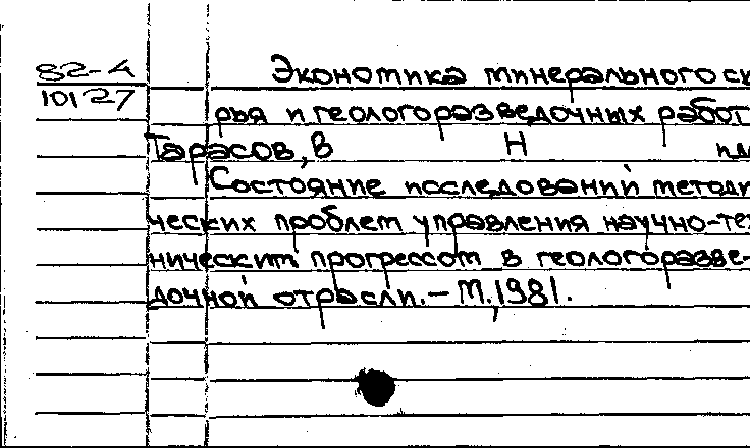 82-А
10127
Экономика минерального сы
рья и геологоразведочных работ
Тарасов, В Н
Состояние исследований методи
ческих проблем управления научно-тех
ническим прогрессом в геологоразве-
дочной отрасли. – М., 1981.